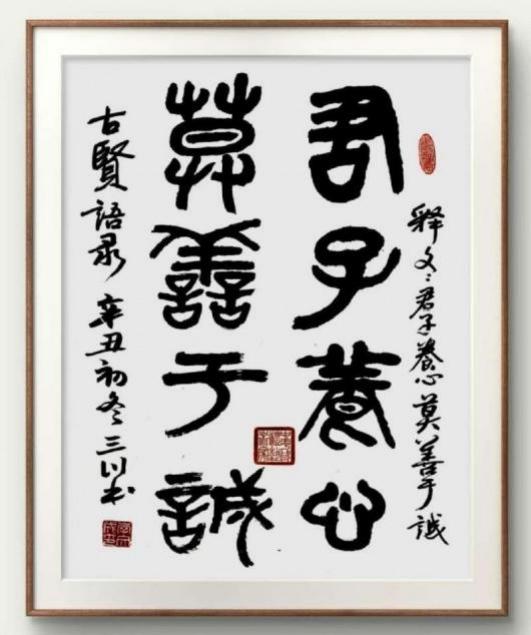 释文：君子養心莫善于誠
君子養心
莫善于誠
古賢語录 辛丑初冬三川书